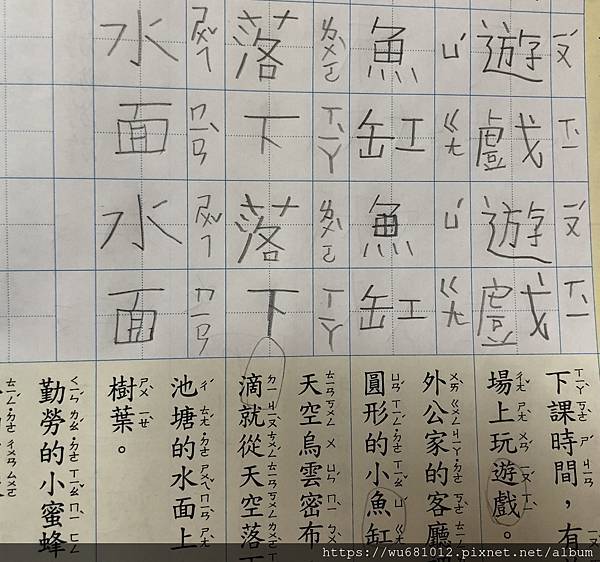 遊戲遊戲
魚缸魚缸
落下落下
水面水面
下課時間，有
場上玩遊戲。
外公家的客廳
圓形的小魚缸
天空烏雲密布
滴就從天空落
池塘的水面上
樹葉。
勤勞的小蜜蜂
https://wu681012.pixnet.net/album